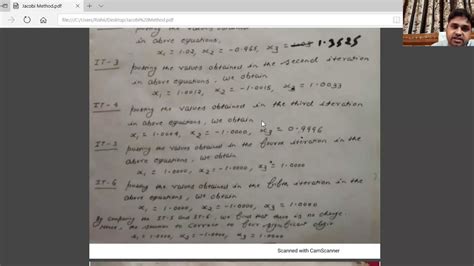 Jacobi Method.pdf
in above equations,
x₁ = 1.02, x₂ = -0.965, x₃ = 1.3525
IT-3 putting the values obtained in the second iteration
in above equations, we obtain
x₁ = 1.0012, x₂ = -1.0015, x₃ = 1.0033
IT-4 putting the values obtained in the third iteration
in above equations, we obtain
x₁ = 1.0004, x₂ = -1.0000, x₃ = 0.9996
IT-5 putting the values obtained in the fourth iteration in the
above equations, we obtain
x₁ = 1.0000, x₂ = -1.0000, x₃ = 1.0000
IT-6 putting the values obtained in the fifth iteration in the
above equations, we obtain
x₁ = 1.0000, x₂ = -1.0000, x₃ = 1.0000
By comparing the IT-5 and IT-6, we find that there is no change
Hence, the solution is correct to four significant
x₁ = 1.0000, x₂ = -1.0000, x₃ = 1.0000
Scanned with CamScanner